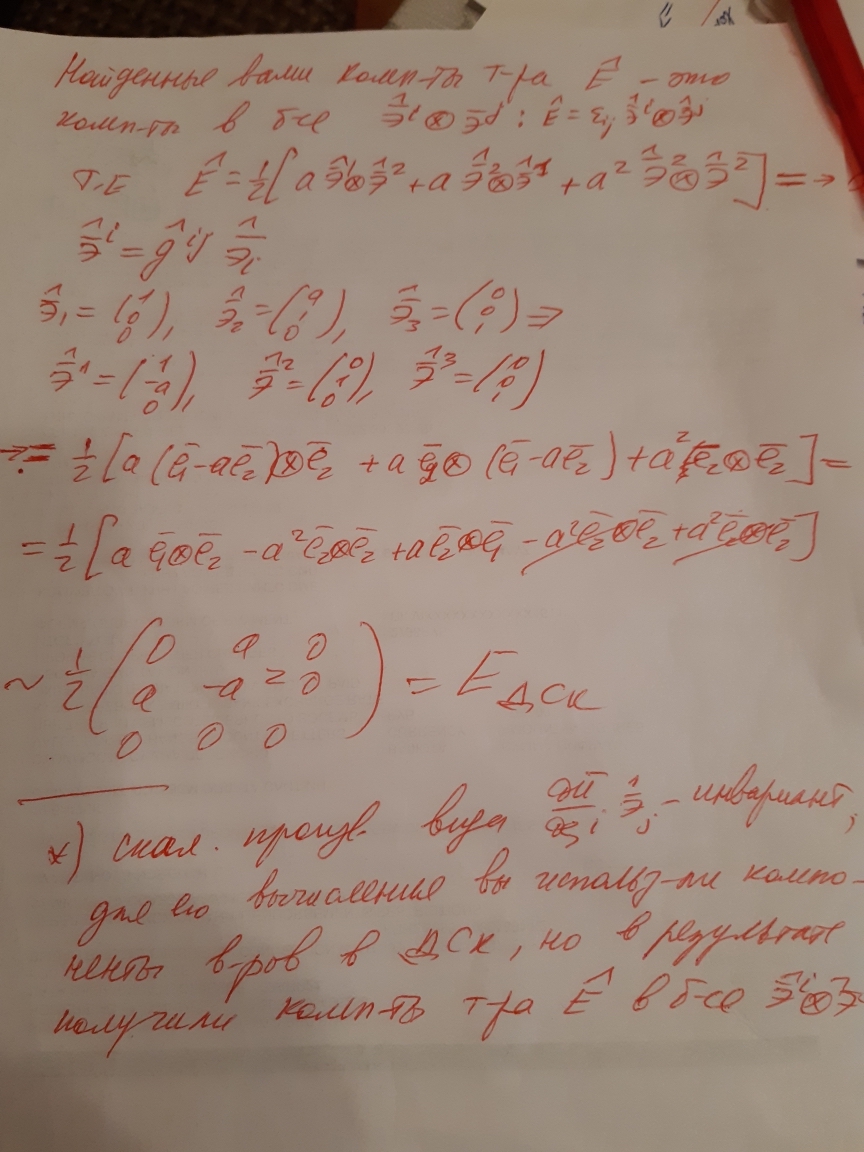 Найденные вами комп-ты т-ра Ê – это
комп-ты в б-се э̂ⁱ⊗э̂ʲ : Ê = εᵢⱼ э̂ⁱ⊗э̂ʲ
т.е Ê = 1/2 [a э̂¹⊗э̂² + a э̂²⊗э̂¹ + a² э̂²⊗э̂²] = →
э̂ⁱ = ĝⁱʲ э̂ⱼ
э̂₁ = (1 0 0), э̂₂ = (a 1 0), э̂₃ = (0 0 1) ⇒
э̂¹ = (1 -a 0), э̂² = (0 1 0), э̂³ = (0 0 1)
→ = 1/2 [a (ē₁ - aē₂)⊗ē₂ + a ē₂⊗(ē₁ - aē₂) + a² ē₂⊗ē₂] =
= 1/2 [a ē₁⊗ē₂ - a² ē₂⊗ē₂ + a ē₂⊗ē₁ - a² ē₂⊗ē₂ + a² ē₂⊗ē₂]
~ 1/2 (0 a 0
a -a² 0
0 0 0) = E ДСК
*) скал. произв. вида ∂ū/∂ξⁱ · э̂ⱼ – инвариант,
для его вычисления вы использ-ли компо-
ненты в-ров в ДСК, но в результате
получили комп-ты т-ра Ê в б-се э̂ⁱ⊗э̂